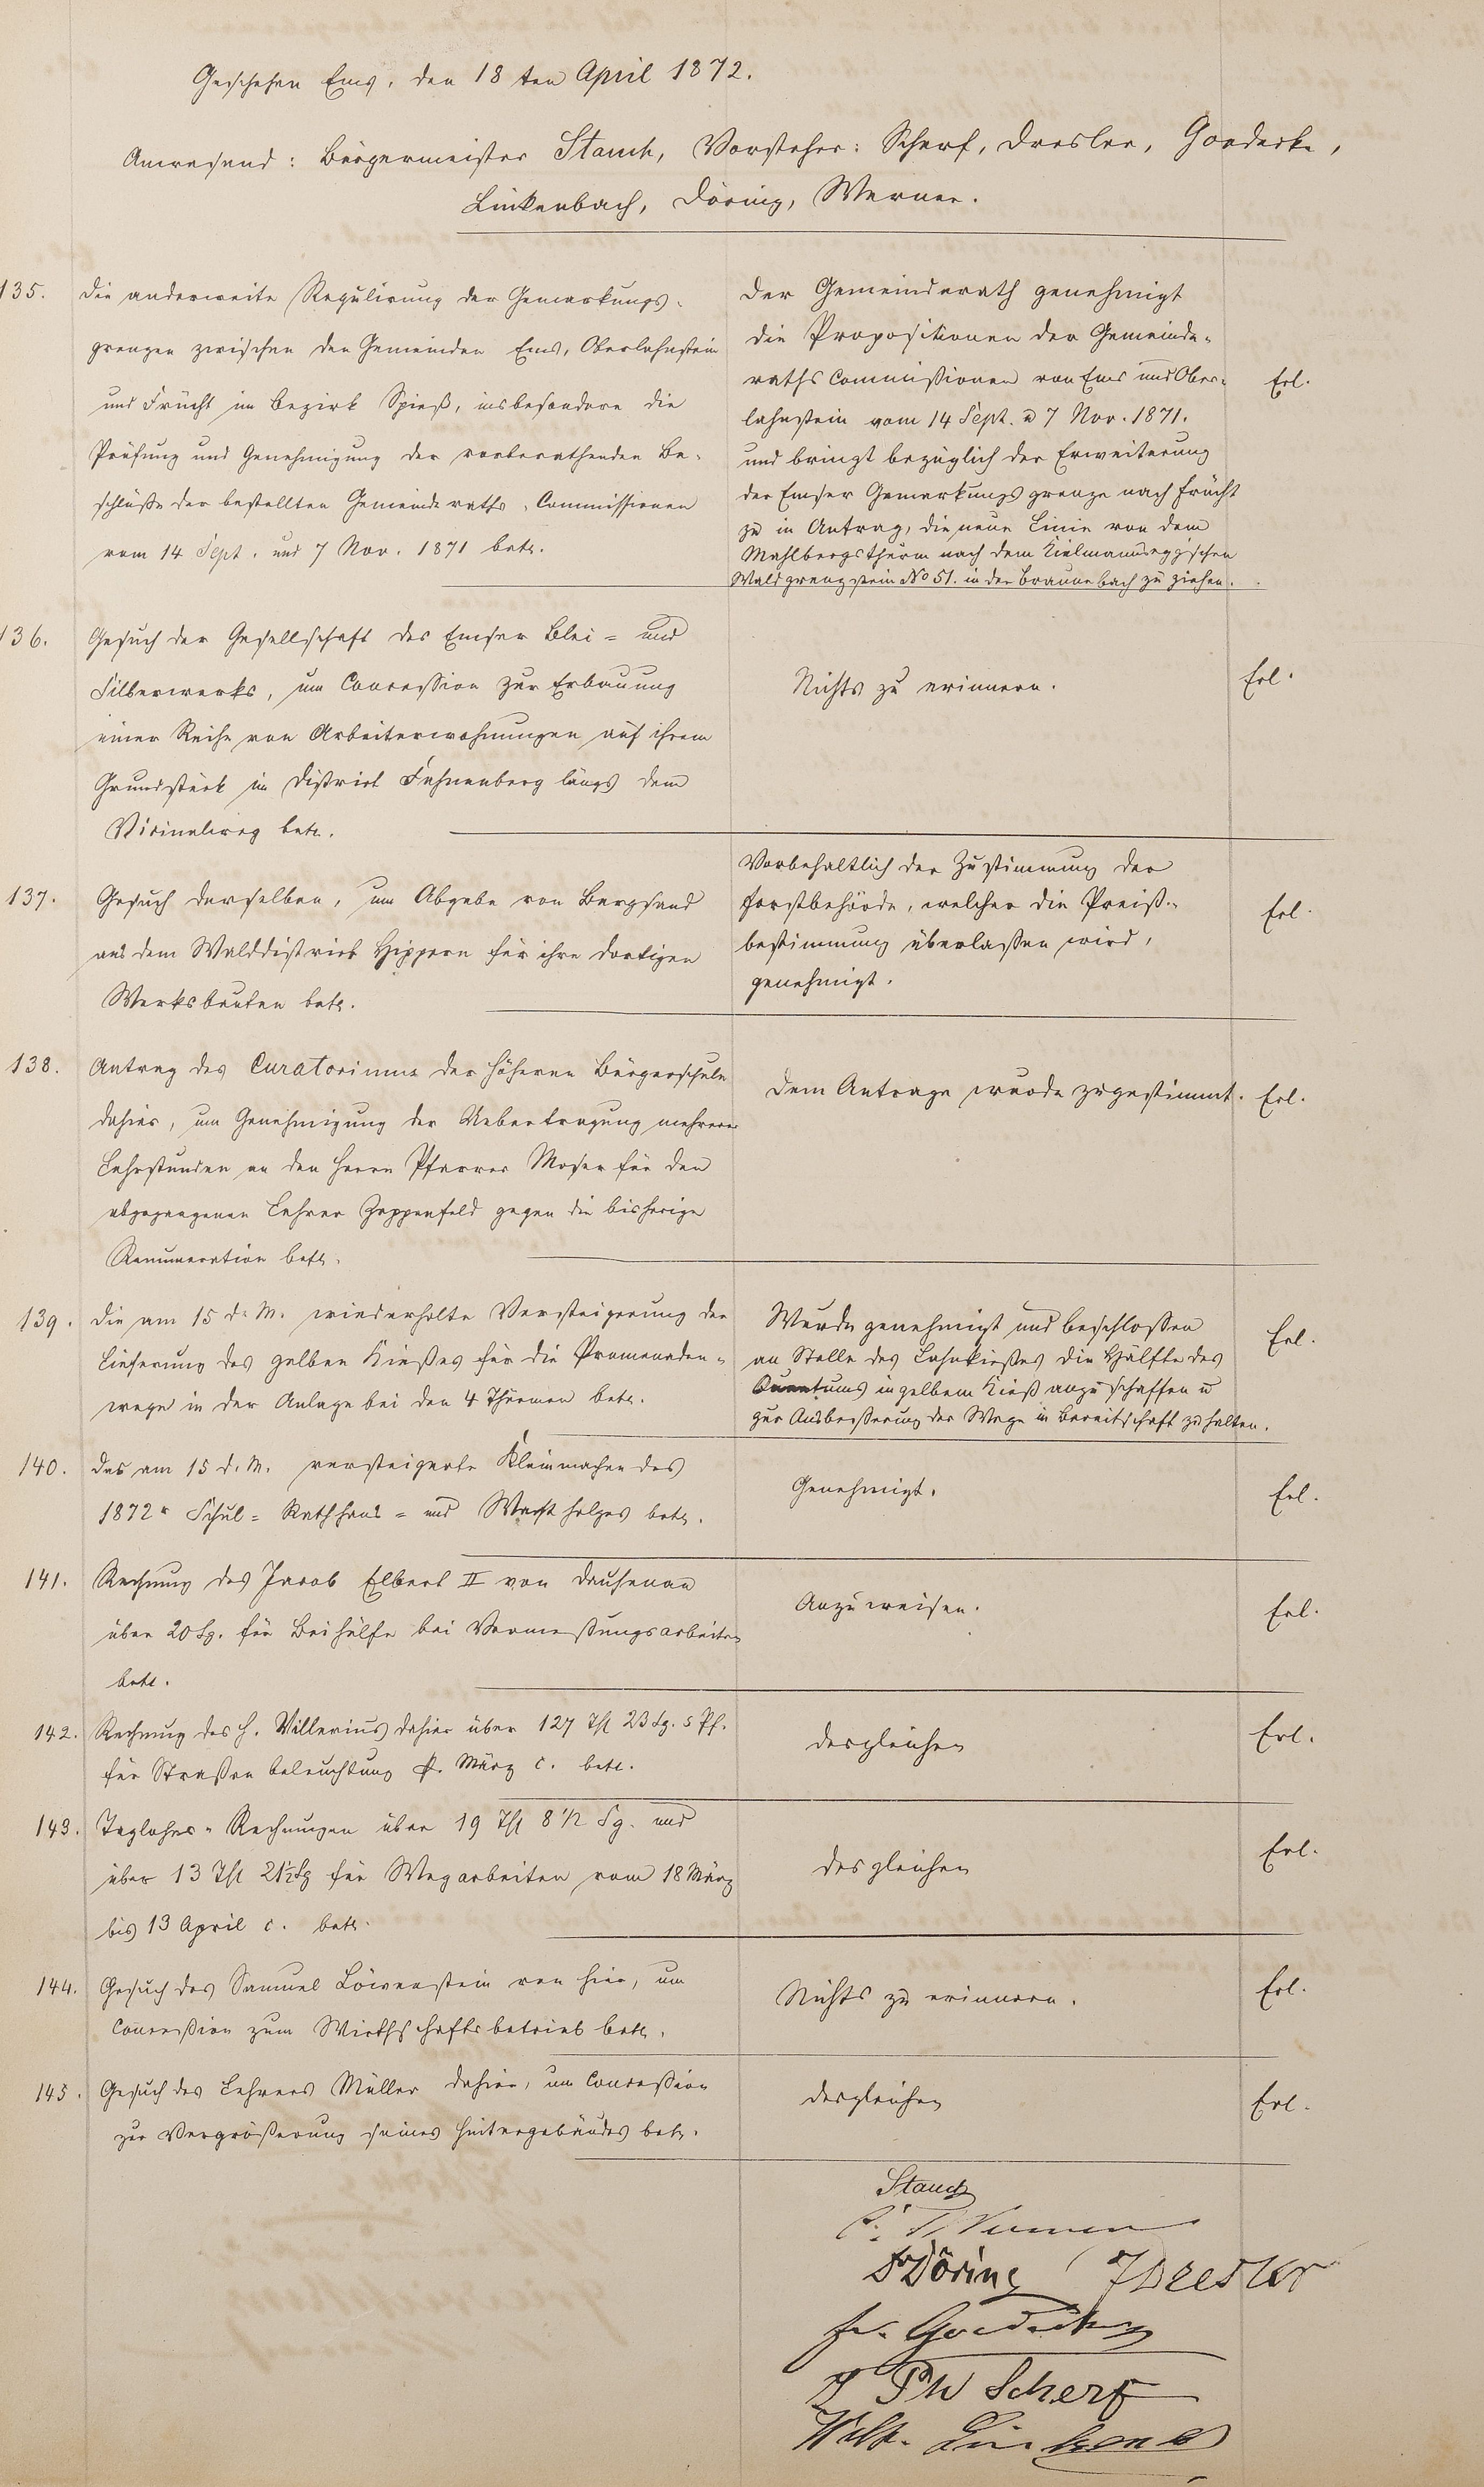 Geschehen Ems, den 18ten April 1872.
Anwesend: Bürgermeister Stauch, Vorsteher: Scherf, Dresler, Goedecke,
Linkenbach, Döring, Werner.
135.
Die anderweite Regulirung der Gemarkungs-
grenzen zwischen den Gemeinden Ems, Oberlahnstein
und Frücht im Bezirk Spieß, insbesondere die
Prüfung und Genehmigung der vorberathenden Be-
schlüße der bestellten Gemeinderaths-Commissionen
vom 14 Sept. und 7 Nov. 1871 betr.
Der Gemeinderath genehmigt
die Propositionen der Gemeinde-
raths Commißionen von Ems und Ober-
lahnstein vom 14 Sept. u 7 Nov. 1871.
und bringt bezüglich der Erweiterung
der Emser Gemarkungsgrenze nach Frücht
zu in Antrag, die neue Linie von dem
Mahlbergsthurm nach dem Kielmannsegg'schen
Waldgrenzstein No 51. in der Braunebach zu ziehen.
Erl.
136.
Gesuch der Gesellschaft des Emser Blei- und
Silberwerks, um Conceßion zur Erbauung
einer Reihe von Arbeiterwohnungen auf ihrem
Grundstück im District Fahnenberg längs dem
Vicinalweg betr.
Nichts zu erinnern.
Erl.
137.
Gesuch derselben, um Abgabe von Bergsand
aus dem Walddistrict Hippern für ihre dortigen
Werksbauten betr.
Vorbehaltlich der Zustimmung der
Forstbehörde, welcher die Preiß-
bestimmung überlaßen wird,
genehmigt.
Erl.
138.
Antrag des Curatoriums der höheren Bürgerschule
dahier, um Genehmigung der Uebertragung mehrerer
Lehrstunden an den Herrn Pfarrer Moser für den
abgegangenen Lehrer Zeppenfeld gegen die bisherige
Remuneration betr.
Dem Antrage wurde zugestimmt.
Erl.
139.
Die am 15 d. M. wiederholte Versteigerung der
Lieferung des gelben Kießes für die Promenaden-
wege in der Anlage bei den 4 Thürmen betr.
Wurde genehmigt und beschloßen
an Stelle des Lahnkießes die Hälfte des
Quantums in gelbem Kieß anzuschaffen u
zur Ausbeßerung der Wege in Bereitschaft zu halten.
Erl.
140.
Das am 15 d. M. versteigerte Kleinmachen des
1872r Schul- Rathhaus- und Wachtholzes betr.
Genehmigt.
Erl.
141.
Rechnung des Jacob Elbert II von Dausenau
über 20 Sg. für Beihülfe bei Vermeßungsarbeiten
betr.
Anzuweisen.
Erl.
142.
Rechnung des H. Villerius dahier über 127 Thl 23 Sg. 5 Pf.
für Straßenbeleuchtung p. März c. betr.
desgleichen
Erl.
143.
Taglohns-Rechnungen über 19 Thl 8 1/2 Sg. und
über 13 Thl 21 1/2 Sg für Wegarbeiten vom 18 März
bis 13 April c. betr.
desgleichen
Erl.
144.
Gesuch des Samuel Löwenstein von hier, um
Conceßion zum Wirthschaftsbetrieb betr.
Nichts zu erinnern.
Erl.
145.
Gesuch des Lehrers Müller dahier, um Conceßion
zur Vergrößerung seines Hintergebäudes betr.
desgleichen
Erl.
Stauch
Werner
Dr Döring
J Dresler
Fr. Goedecke
Ph W Scherf
Wilh. Linkenb